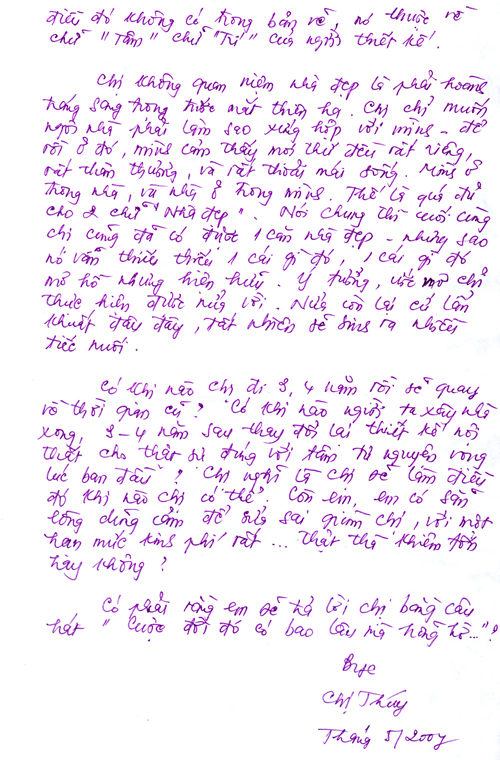 điều đó không có trong bản vẽ, nó thuộc về
chữ "Tâm" chữ "Trí" của người thiết kế.
Chị không quan niệm nhà đẹp là phải hoàng
tráng sang trọng trước mắt thiên hạ. Chị chỉ muốn
ngôi nhà phải làm sao xứng hợp với mình - để
rồi ở đó, mình cảm thấy mọi thứ đều rất riêng,
rất thân thương, và rất thoải mái sống. Mình ở
trong nhà, và nhà ở trong mình. Thế là quá đủ
cho 2 chữ "Nhà đẹp". Nói chung thì cuối cùng
chị cũng đã có được 1 căn nhà đẹp - nhưng sao
nó vẫn thiếu thiếu 1 cái gì đó, 1 cái gì đó
mơ hồ nhưng hiện hữu. Ý tưởng, ước mơ chỉ
thực hiện được nửa vời. Nửa còn lại cứ lẩn
khuất đâu đây, tất nhiên sẽ sinh ra nhiều
tiếc nuối.
Có khi nào chị đi 3, 4 năm rồi sẽ quay
về thời gian cũ? Có khi nào người ta xây nhà
xong, 3-4 năm sau thay đổi lại thiết kế nội
thất cho thật sự đúng với tâm tư nguyện vọng
lúc ban đầu? Chị nghĩ là chị sẽ làm điều
đó khi nào chị có thể. Còn em, em có sẵn
lòng dũng cảm để sửa sai giùm chị, với một
hạn mức kinh phí rất ... thật thà khiêm tốn
hay không?
Có phải rằng em sẽ trả lời chị bằng câu
hát "Cuộc đời đó có bao lâu mà hững hờ..."?
Chị Thúy
Tháng 5/2007